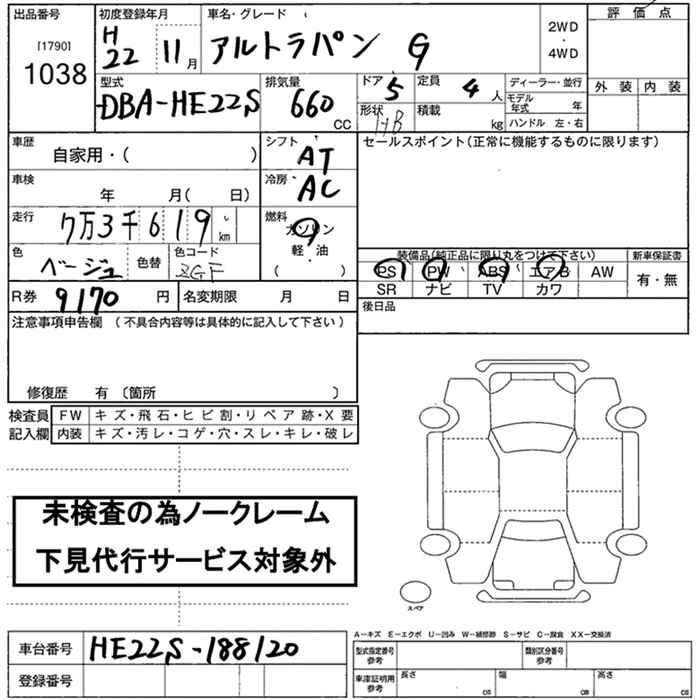 出品番号 初度登録年月 車名・グレード 評価点
[1790] H 2WD
1038 22 11月 アルトラパン G ・ 4WD
型式 排気量 ドア 5 定員 4人 ディーラー・並行 外装 内装
DBA-HE22S 660 CC 形状 HB 積載 kg モデル年式 年
ハンドル 左・右
車歴 シフト セールスポイント(正常に機能するものに限ります)
自家用・( ) AT
車検 冷房
年 月( 日) AC
走行 燃料
7万3千619 km ガソリン
軽・油
色 色替 色コード 装備品(純正品に限り丸をつけて下さい) 新車保証書
ベージュ 3GF ( ) PS PW ABS エアB AW 有・無
SR ナビ TV カワ
R券 9170 円 名変期限 月 日 後日品
注意事項申告欄 (不具合内容等は具体的に記入して下さい)
修復歴 有 〔箇所 〕
検査員 FW キズ・飛石・ヒビ割・リペア跡・X要
記入欄 内装 キズ・汚レ・コゲ・穴・スレ・キレ・破レ
未検査の為ノークレーム
下見代行サービス対象外
スペア
A-キズ E-エクボ U-凹み W-補修跡 S-サビ C-腐食 XX-交換済
車台番号 HE22S-188120 型式指定番号 参考 類別区分番号 参考
登録番号 車庫証明用 参考 長さ cm 幅 cm 高さ cm